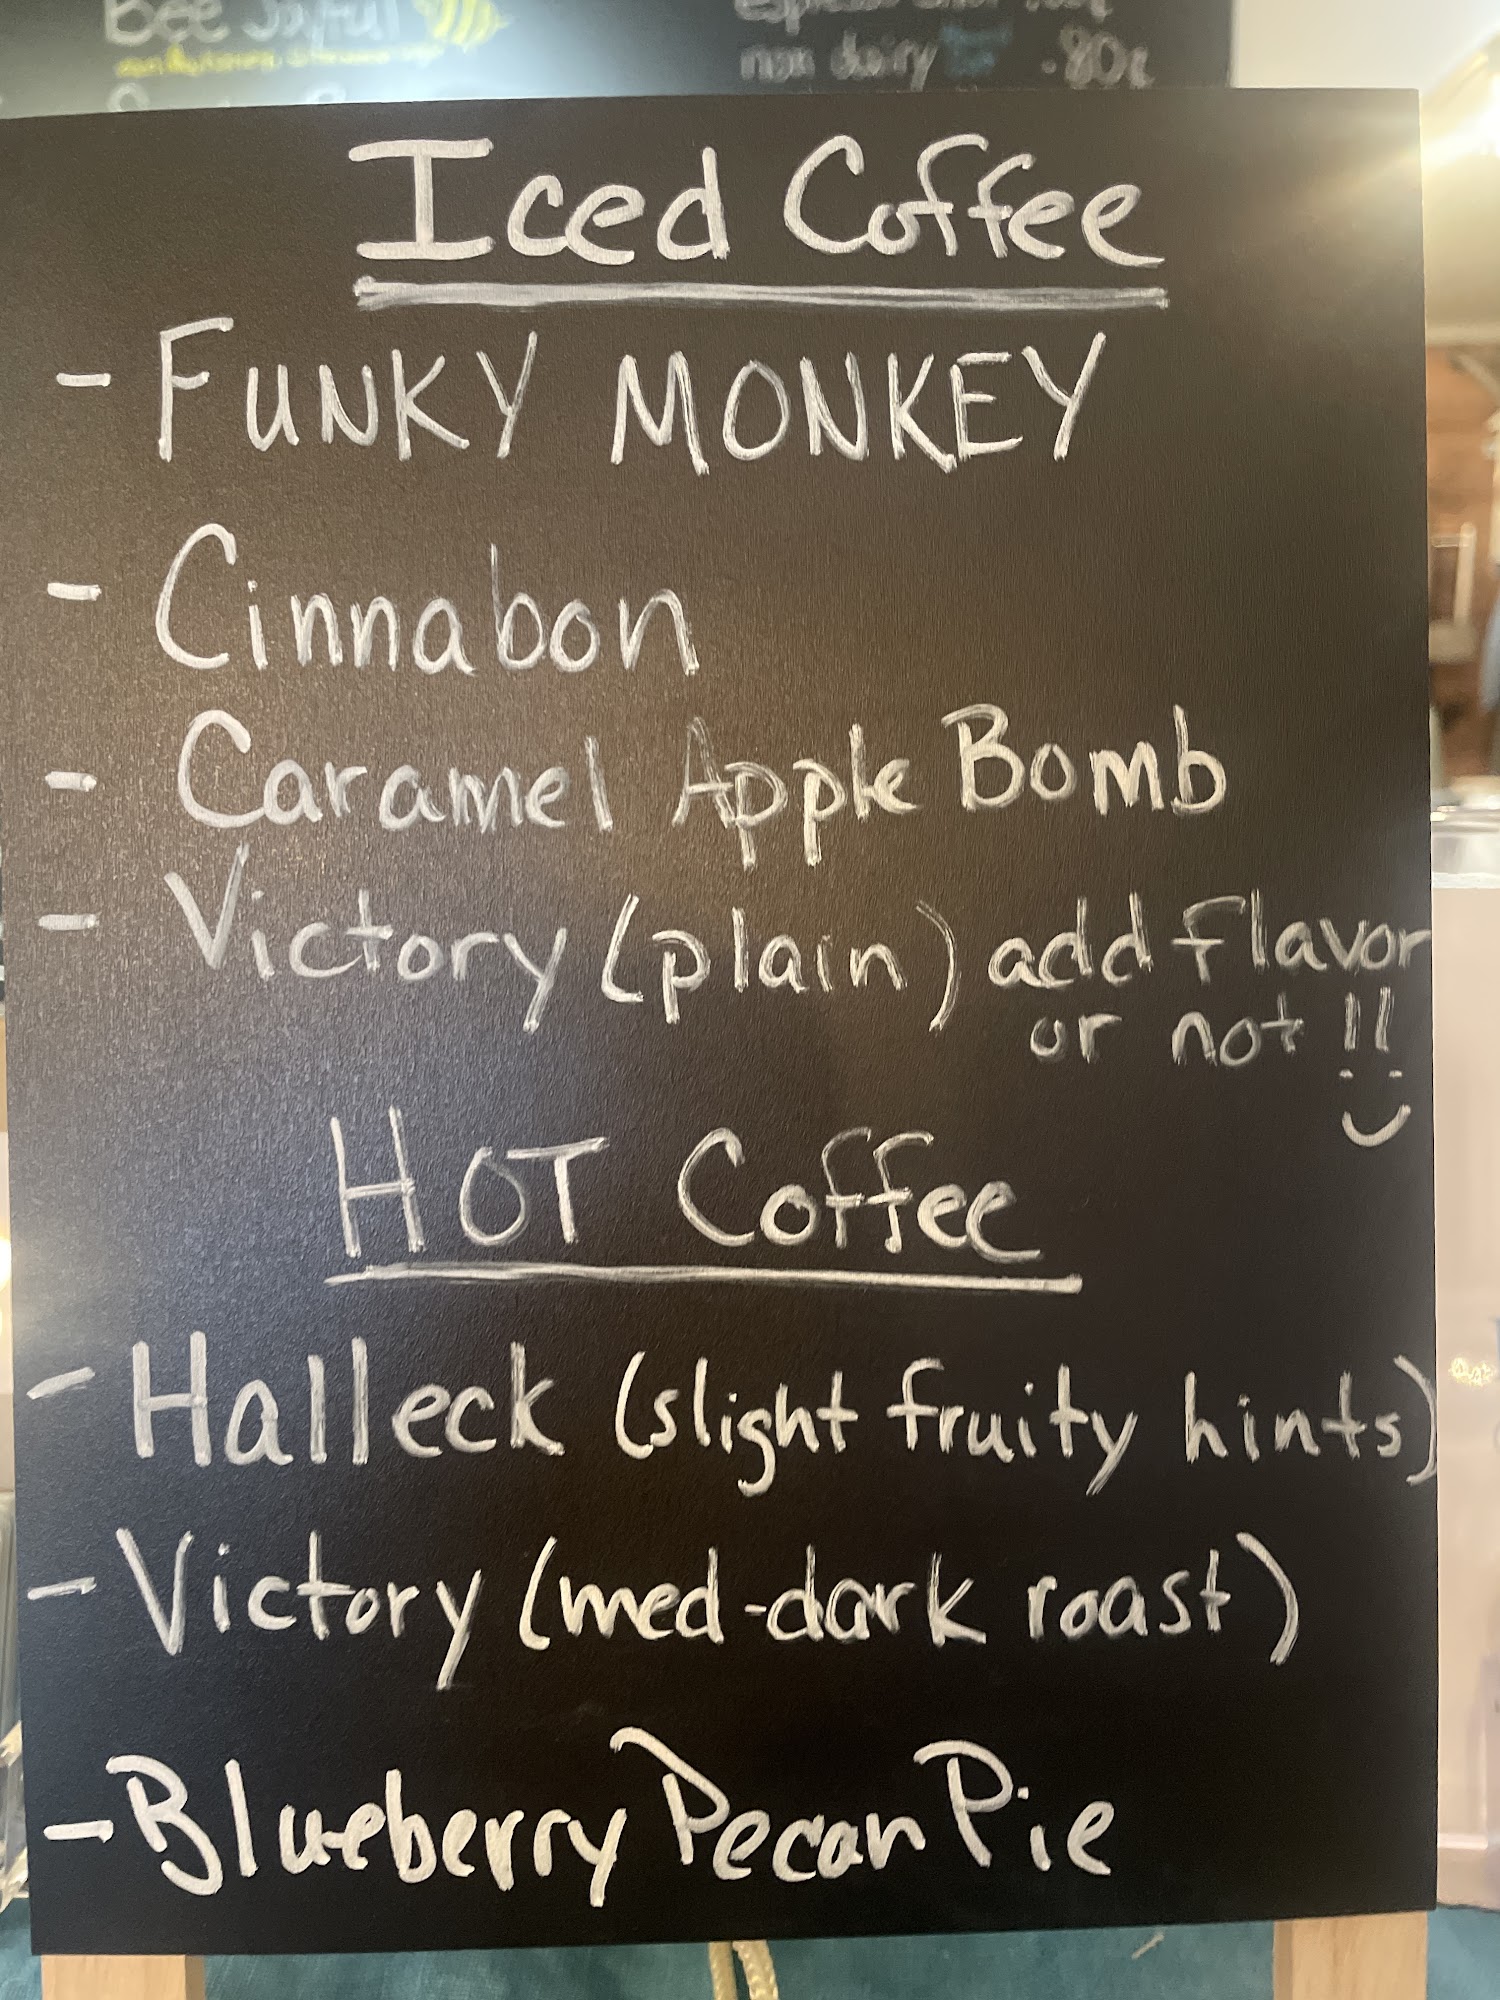 Bee Joyful
non dairy .80¢
Iced Coffee
- FUNKY MONKEY
- Cinnabon
- Caramel Apple Bomb
- Victory (plain) add flavor
or not !!
- HOT Coffee
- Halleck (slight fruity hints)
- Victory (med-dark roast)
- Blueberry Pecan Pie